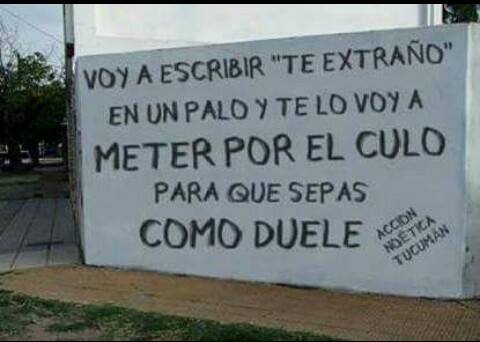 VOY A ESCRIBIR "TE EXTRAÑO"
EN UN PALO Y TE LO VOY A
METER POR EL CULO
PARA QUE SEPAS
COMO DUELE
ACCION
NOÉTICA
TUCUMÁN